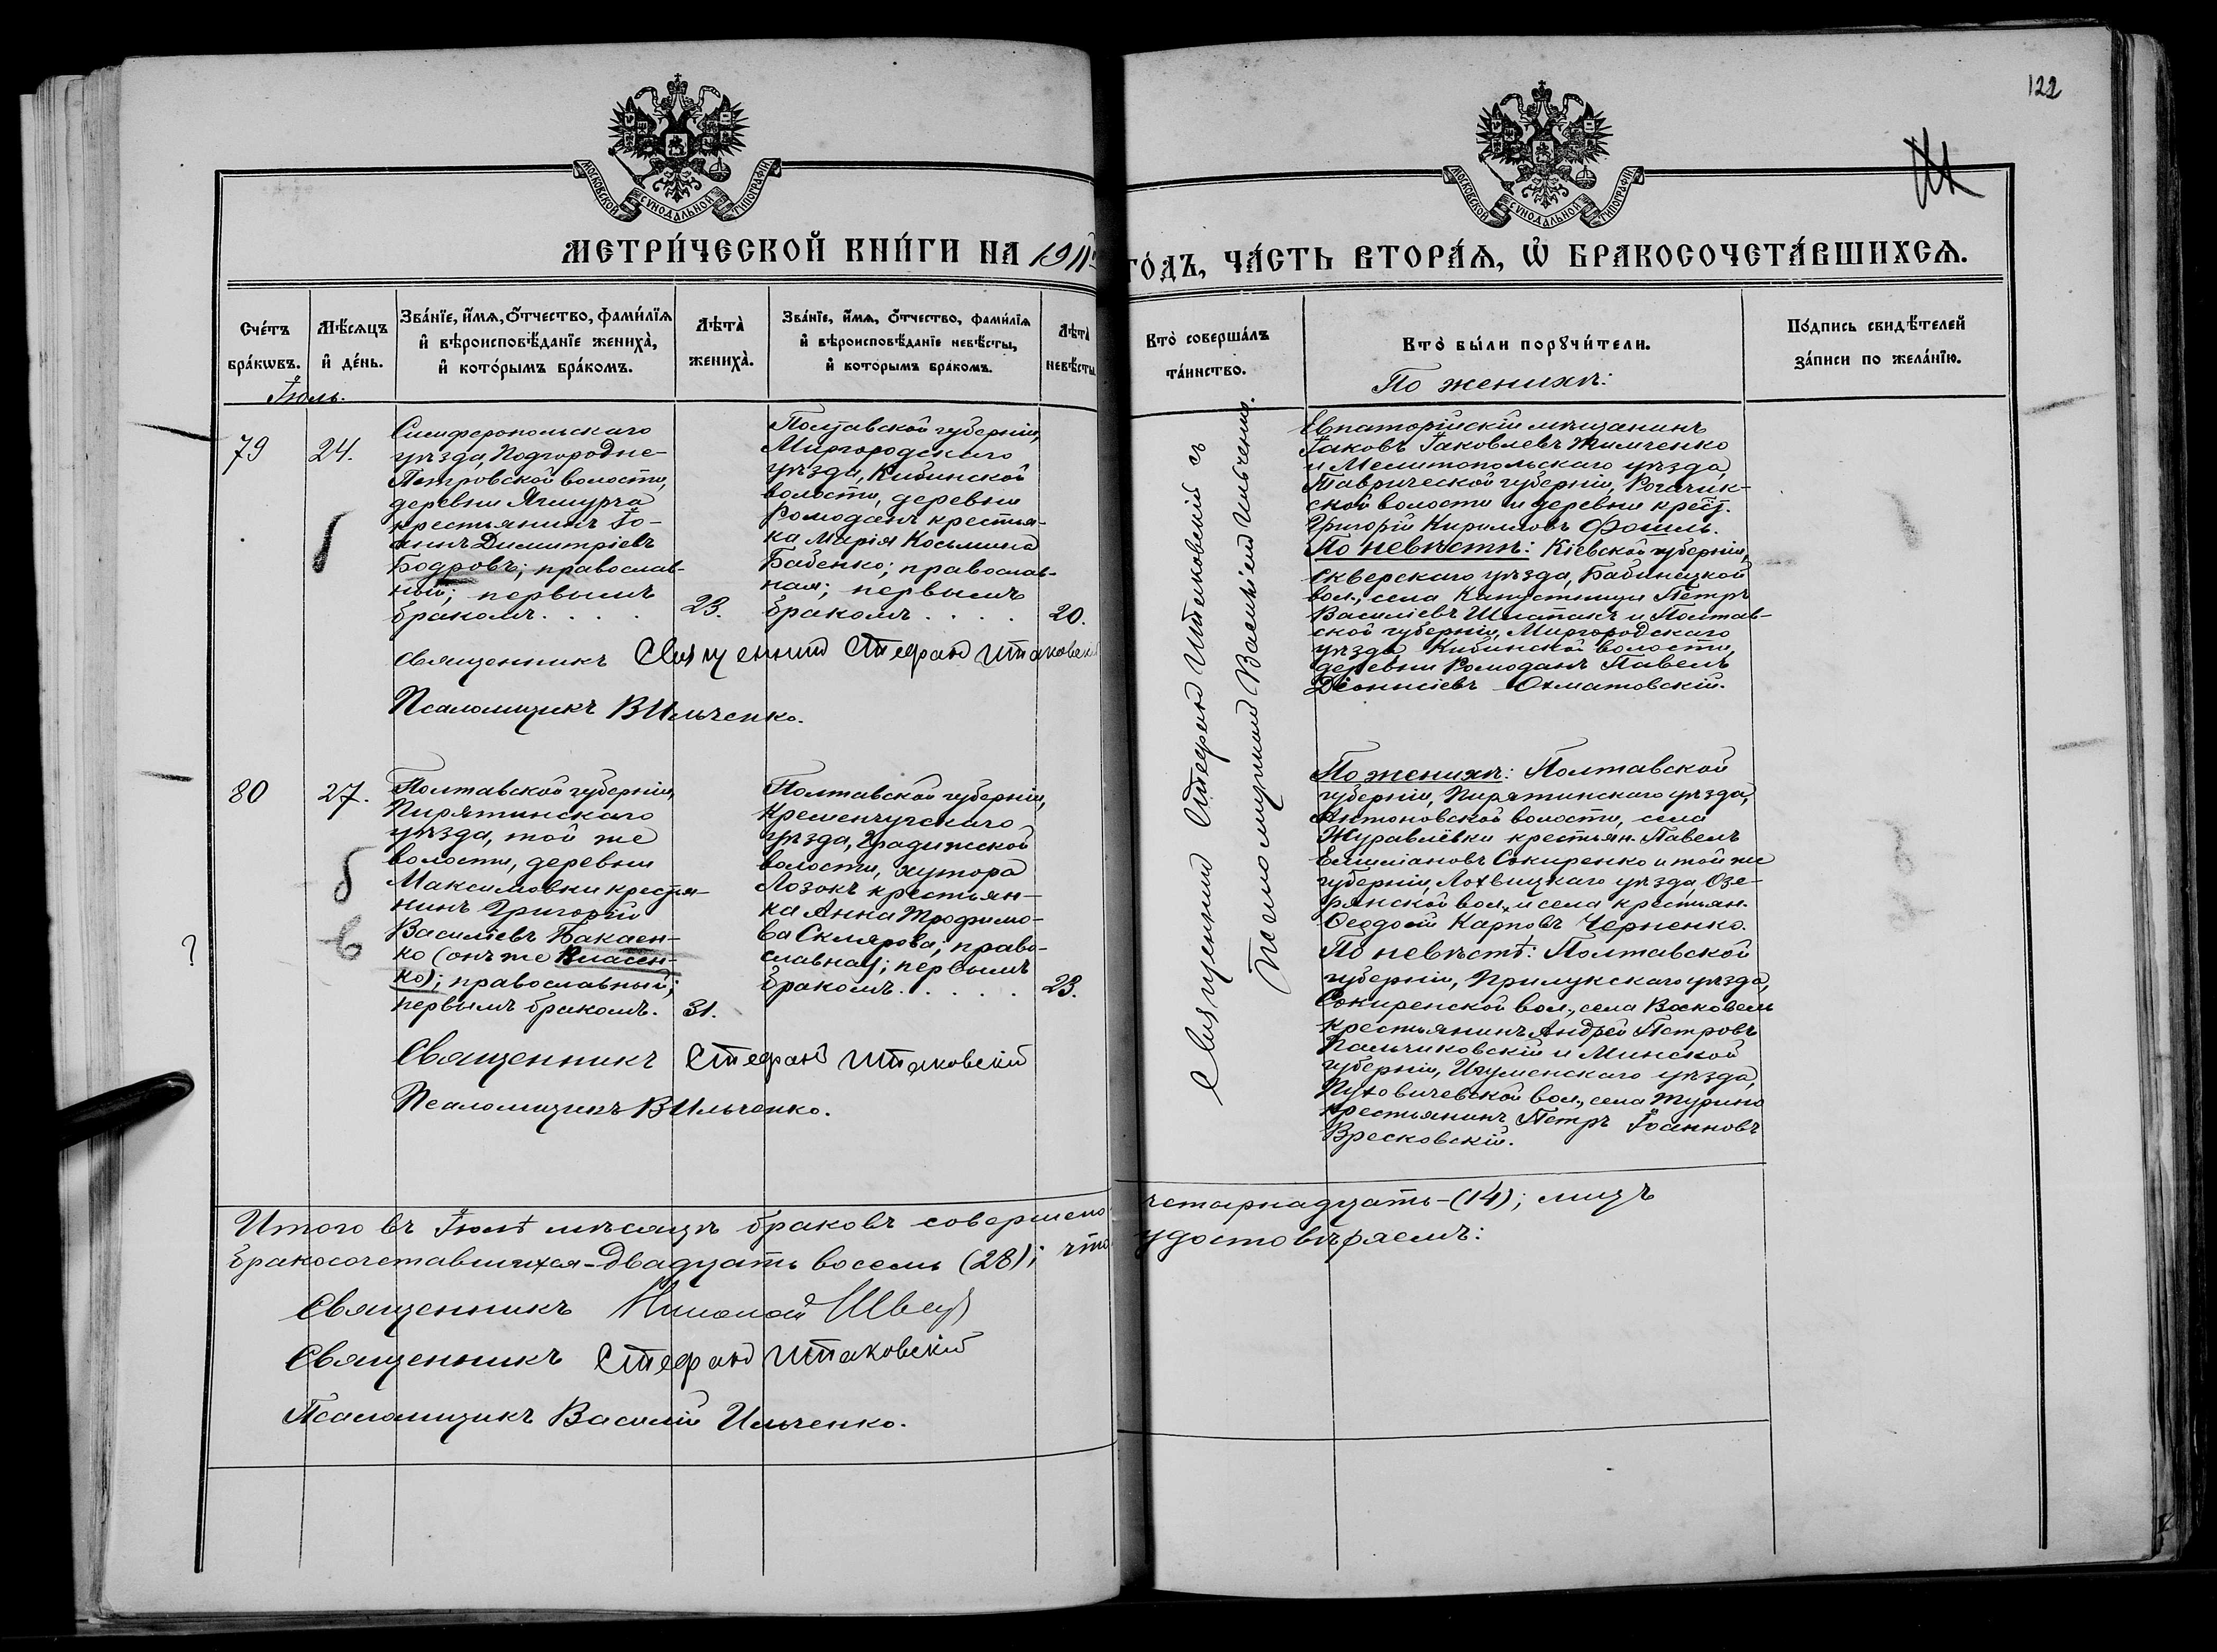 122
МОСКОВСКОЙ СѴНОДАЛЬНОЙ ТИПОГРАФІИ
МОСКОВСКОЙ СѴНОДАЛЬНОЙ ТИПОГРАФІИ
МЕТРИ́ЧЕСКОЙ КНИ́ГИ НА 1911й
ГО́ДЪ, ЧА́СТЬ ВТОРА́Ѧ, Ѽ БРАКОСОЧЕТА́ВШИХСѦ.
Сче́тъ бра́кѡвъ.
Мѣ́сѧцъ и҆ де́нь.
Зва́нїе, и҆́мѧ, ѻ҆́тчество, фами́лїѧ
и҆ вѣроисповѣ́данїе жениха̀,
и҆ кото́рымъ бра́комъ.
Лѣта̀
жениха̀.
Зва́нїе, и҆́мѧ, ѻ҆́тчество, фами́лїѧ
и҆ вѣроисповѣ́данїе невѣ́сты,
и҆ кото́рымъ бра́комъ.
Лѣта̀
невѣ́сты
Кто̀ соверша́лъ
та́инство.
Кто̀ бы́ли порꙋчи́тели.
По́дпись свидѣ́телей
за́писи по жела́нїю.
Іюль.
По женихѣ:
79
24.
Симферопольскаго
уѣзда, Подгородне-
Петровской волости,
деревни Ягмурча
крестьянинъ Іо-
аннъ Димитріевъ
Бодровъ; православ-
ной; первымъ
бракомъ. . . .
23.
Полтавской губерніи,
Миргородскаго
уѣзда, Кибинской
волости, деревни
Ромоданъ крестьян-
ка Марія Косьмина
Бабенко; православ-
ная; первымъ
бракомъ . . . .
20.
Священникъ Священник Стефан Штаковскій
Псаломщикъ В Ильченко.
Священник Стефан Штаковский съ
Псаломщиком Василіем Ильченко.
Евпаторійскій мѣщанинъ
Іаковъ Іаковлевъ Жилченко
и Мелитопольскаго уѣзда,
Таврической губерніи, Рогачик-
ской волости и деревни крест.
Григорій Кирилловъ Фошль.
По невѣстѣ: Кіевской губерніи,
Скверскаго уѣзда, Бабинецкой
вол., села Капустинцы Петръ
Василіевъ Шлапакъ и Полтав-
ской губерніи, Миргородскаго
уѣзда Кибинской волости,
деревни Ромоданъ Павелъ
Діонисіевъ Охматовскій.
80
27.
?
Полтавской губерніи,
Пирятинскаго
уѣзда, той же
волости, деревни
Максимовки крестья-
нинъ Григорій
Василіевъ Бакаен-
ко (онъ же Власен-
ко); православный;
первымъ бракомъ.
31.
Полтавской губерніи,
Кременчугскаго
уѣзда, Градижской
волости, хутора
Лозокъ крестьян-
ка Анна Трофимо-
ва Склярова; право-
славная; первымъ
бракомъ. . . . .
23.
Священникъ Стефан Штаковскій
Псаломщикъ В Ильченко.
По женихѣ: Полтавской
губерніи, Пирятинскаго уѣзда,
Антоновской волости, села
Журавлёвки крестьян. Павелъ
Емиліановъ Сокиренко и той же
губерніи, Лохвицкаго уѣзда, Озе-
рянской вол. и села крестьян.
Ѳеодосій Карповъ Черненко.
По невѣстѣ: Полтавской
губерніи, Прилукскаго уѣзда,
Сокиренской вол., села Васковецъ
крестьянинъ Андрей Петровъ
Пальчиковскій и Минской
губерніи, Игуменскаго уѣзда,
Пуховичевской вол., села Турино
крестьянинъ Петръ Іоанновъ
Вресковскій.
Итого въ Іюлѣ мѣсяцѣ браковъ совершено четырнадцать-(14); лицъ
бракосочетавшихся-двадцать восемь (28); что удостовѣряемъ:
Священникъ Николай Швец
Священникъ Стефан Штаковскій
Псаломщикъ Василій Ильченко.